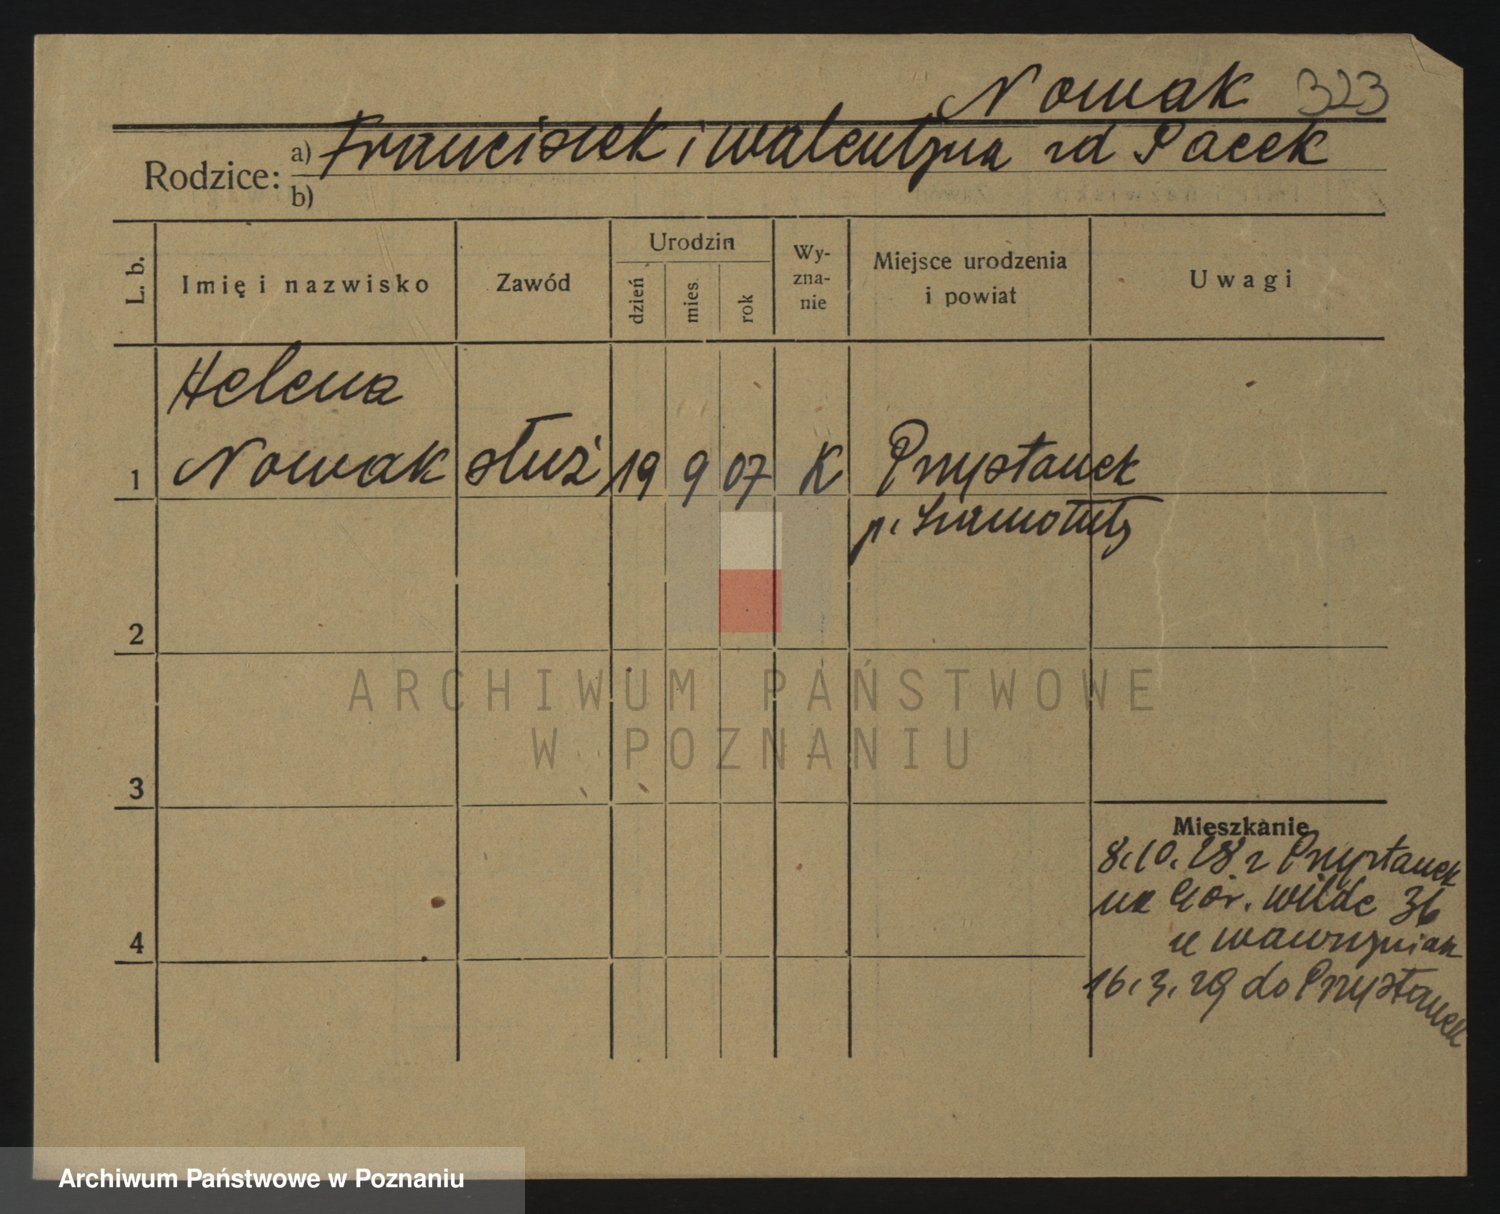 Nowak 323
Rodzice: a) Franciszek i Walentyna zd Pacek
b)
L. b.
Imię i nazwisko
Zawód
Urodzin
dzień
mies.
rok
Wy-
zna-
nie
Miejsce urodzenia
i powiat
Uwagi
Helena
1 Nowak służ 19 9 07 K Przystanek
p. Szamotuły
2
3
4
Mieszkanie
8.10.28 z Przystanek
na Gór. Wilde 36
u Wawrzyniak
16.3.29 do Przystanek
ARCHIWUM PAŃSTWOWE
W POZNANIU
Archiwum Państwowe w Poznaniu